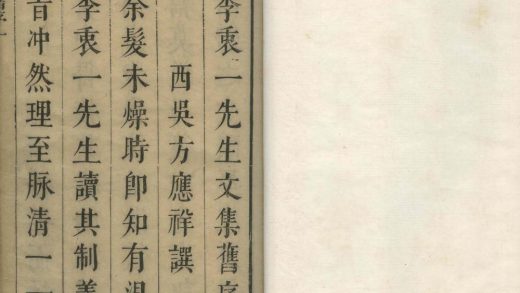 李衷一先生文集舊序
西吳方應祥譔
余髮未燥時即知有温
李衷一先生讀其制義
旨冲然理至脉清一一